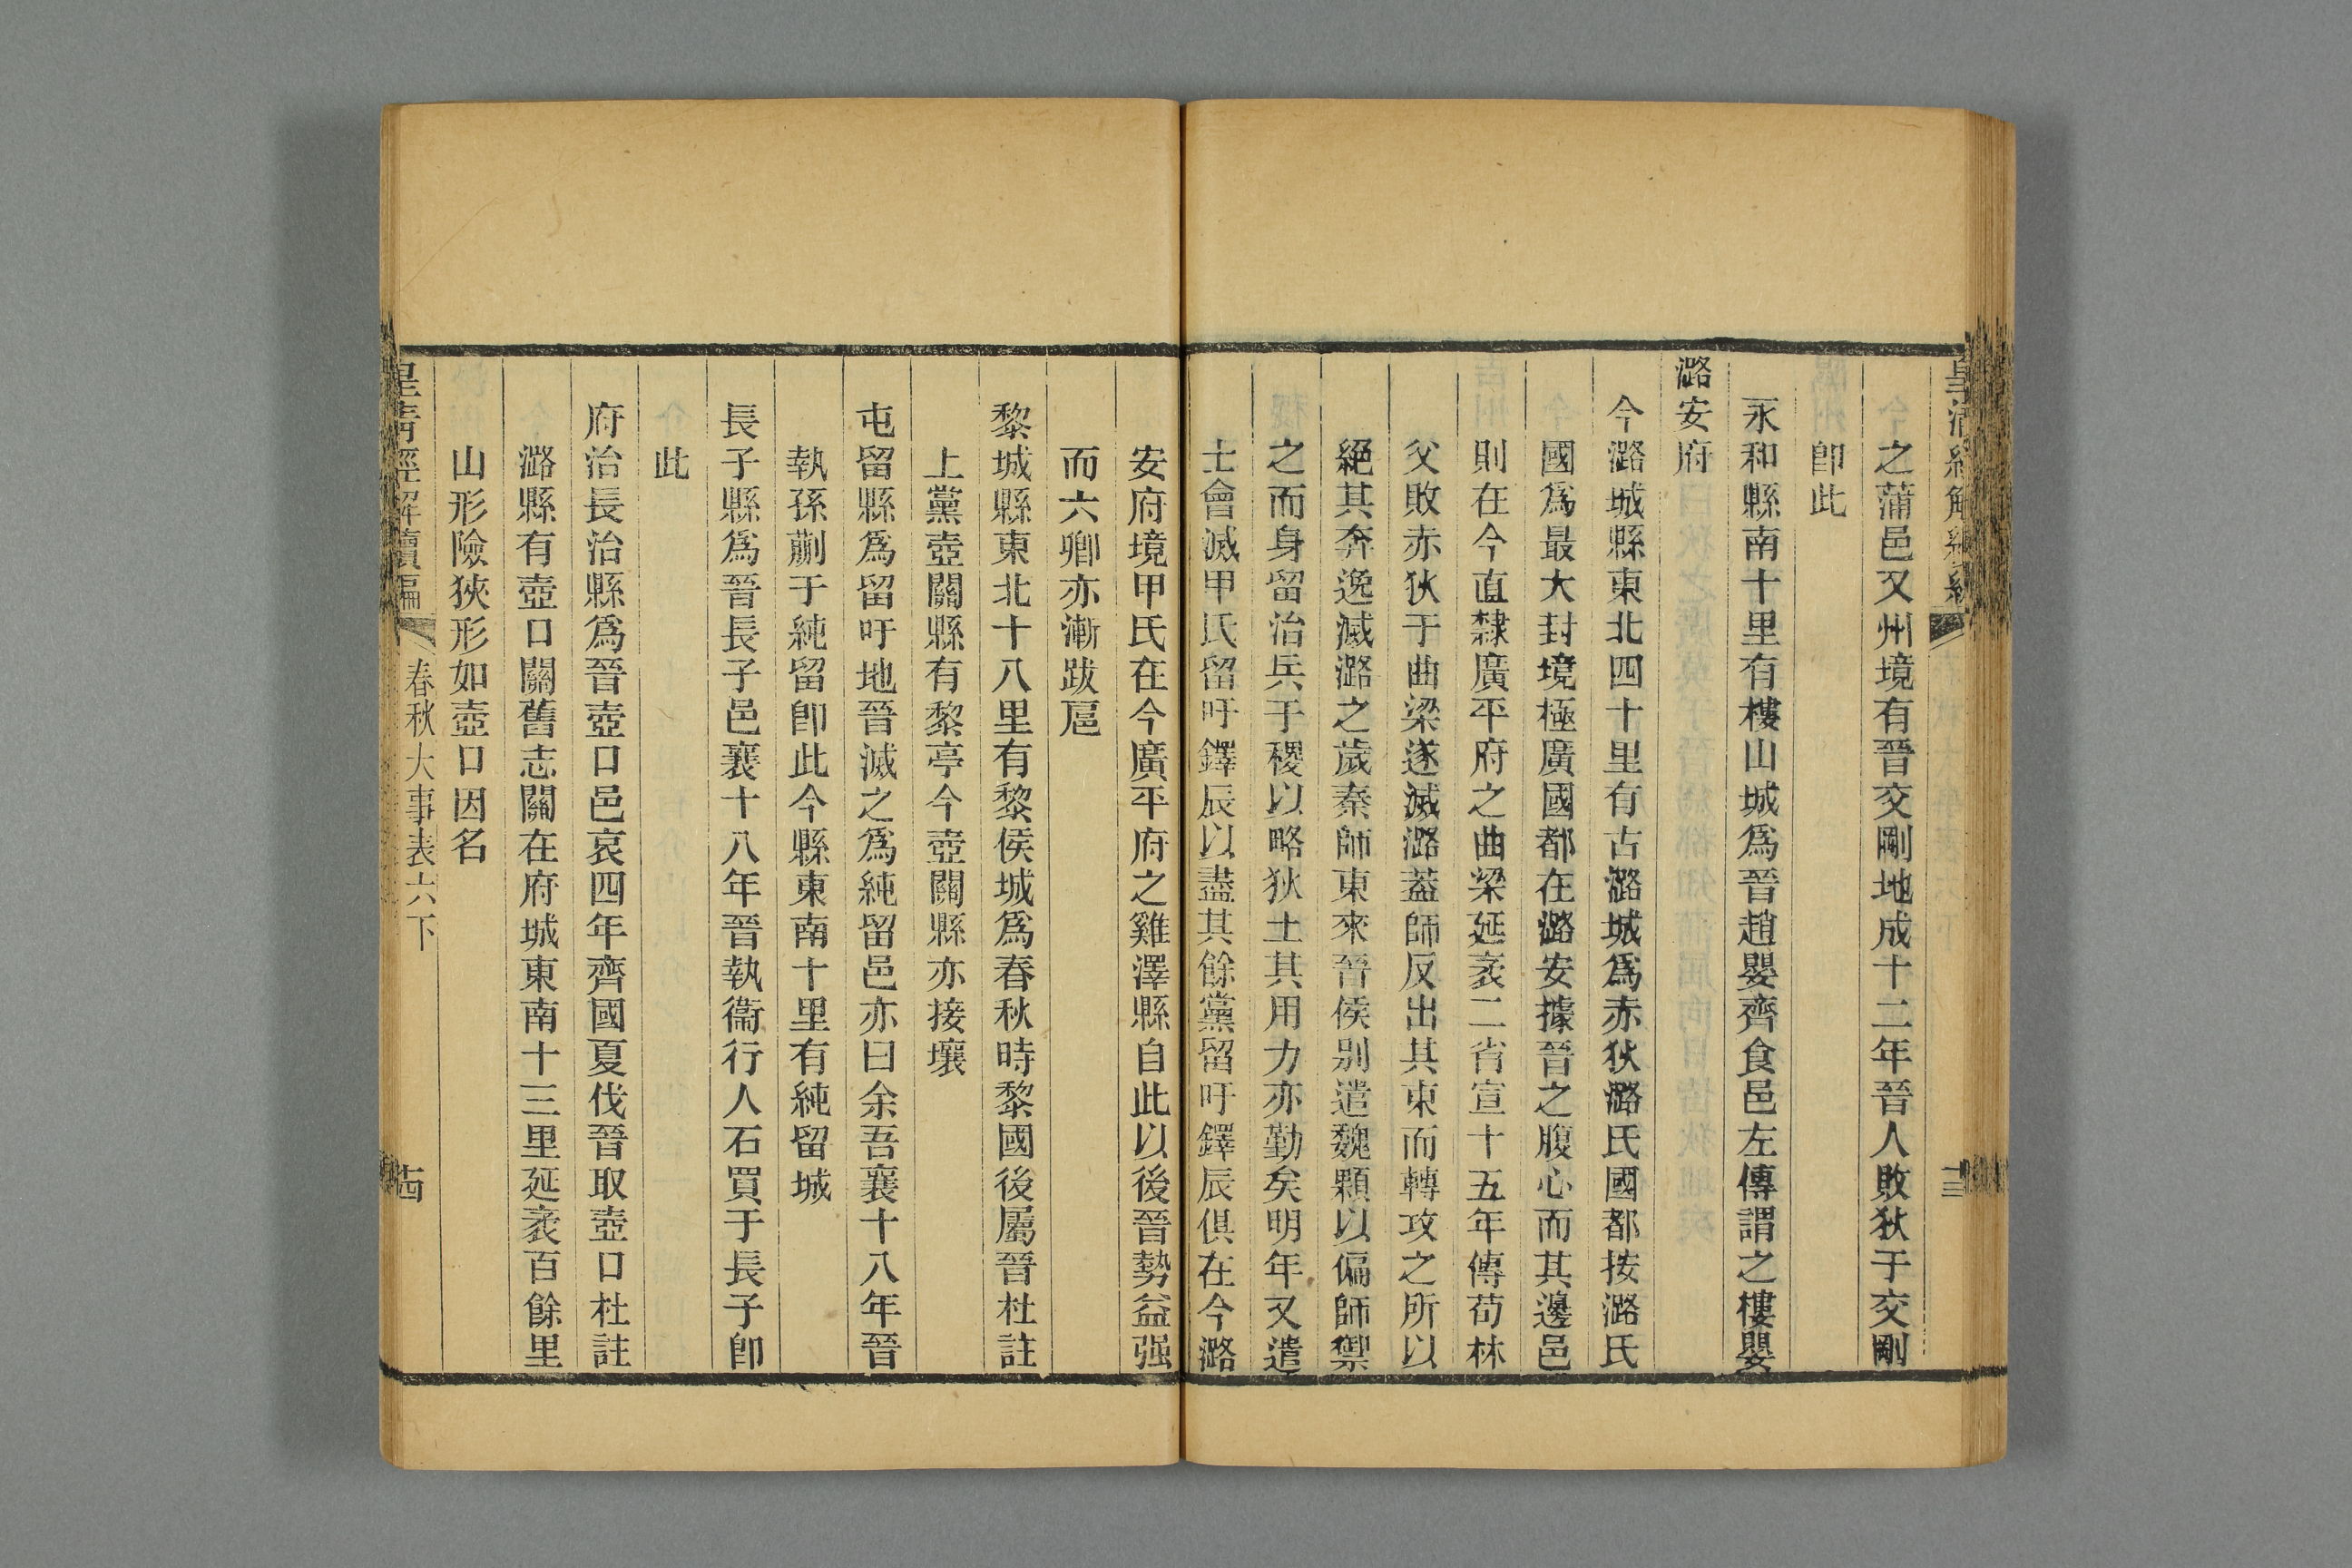 之蒲邑又州境有晉交剛地成十二年晉人敗狄于交剛
卽此
永和縣南十里有樓山城爲晉趙嬰齊食邑左傳謂之樓嬰
潞安府
今潞城縣東北四十里有古潞城爲赤狄潞氏國都按潞氏
國爲最大封境極廣國都在潞安據晉之腹心而其邊邑
則在今直隸廣平府之曲梁延袤二省宣十五年傳荀林
父敗赤狄于曲梁遂滅潞蓋師反出其東而轉攻之所以
絕其奔逸滅潞之歲秦師東來晉侯別遣魏顆以偏師禦
之而身留治兵于稷以略狄土其用力亦勤矣明年又遣
士會滅甲氏留吁鐸辰以盡其餘黨留吁鐸辰俱在今潞
安府境甲氏在今廣平府之雞澤縣自此以後晉勢益强
而六卿亦漸跋扈
黎城縣東北十八里有黎侯城爲春秋時黎國後屬晉杜註
上黨壺關縣有黎亭今壺關縣亦接壤
屯留縣爲留吁地晉滅之爲純留邑亦曰余吾襄十八年晉
執孫蒯于純留卽此今縣東南十里有純留城
長子縣爲晉長子邑襄十八年晉執衞行人石買于長子卽
此
府治長治縣爲晉壺口邑哀四年齊國夏伐晉取壺口杜註
潞縣有壺口關舊志關在府城東南十三里延袤百餘里
山形險狹形如壺口因名
皇清經解續編
春秋大事表六下
十四